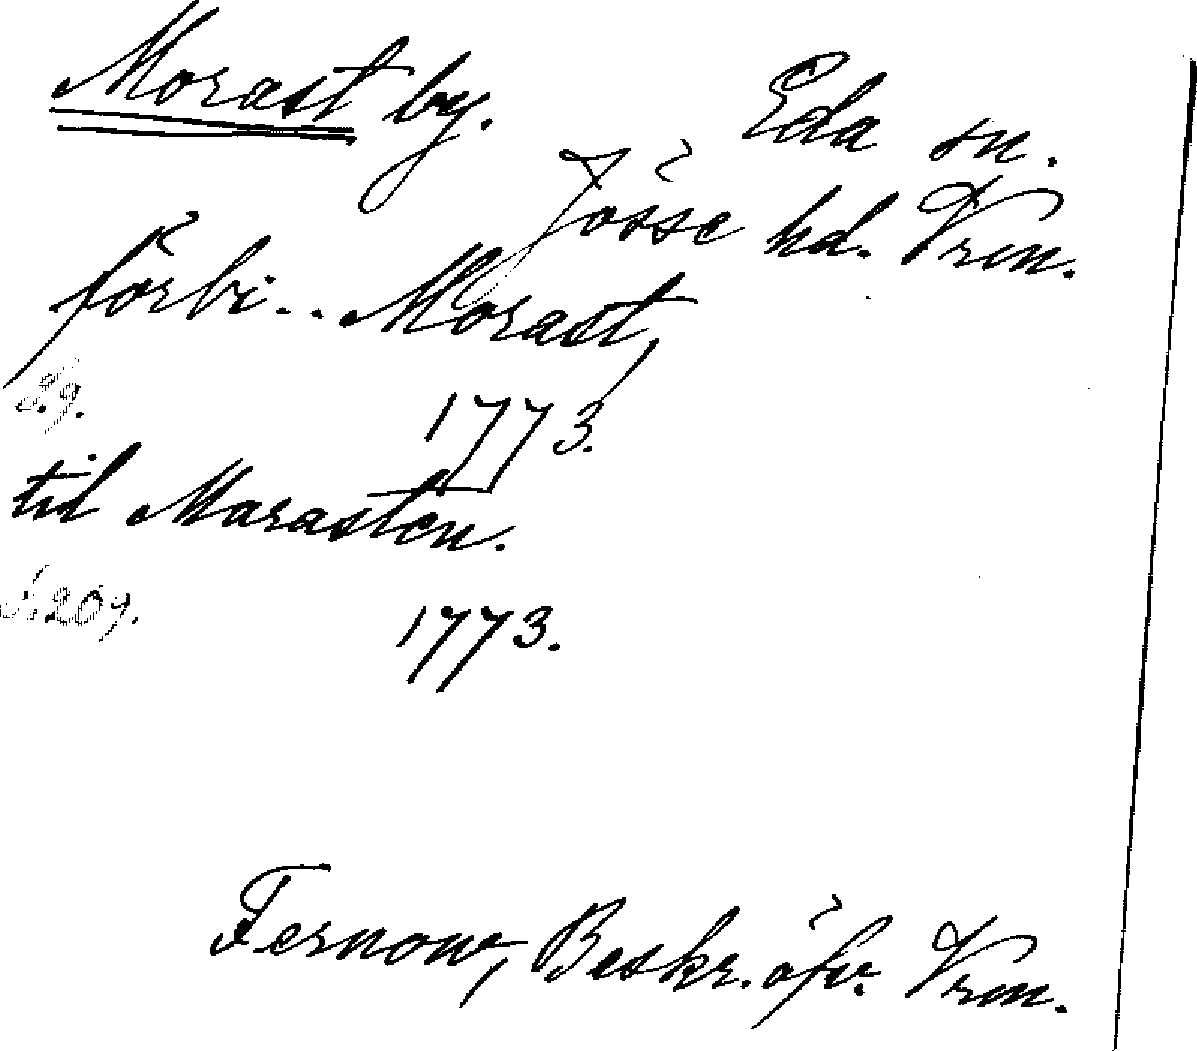 Morast by. Eda sn.
Jösse hd. Vrm.
förbi... Morast,
S. 9. 1773.
til Marasten.
S. 209. 1773.
Fernow, Beskr. öfv. Vrm.